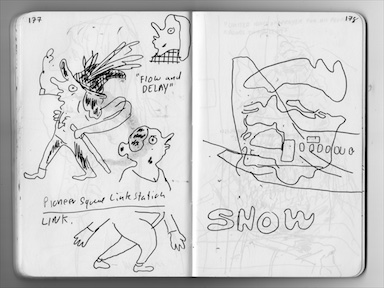 177
"Flow and
DELAY"
Pioneer Square Link Station
LINK.
178
SNOW